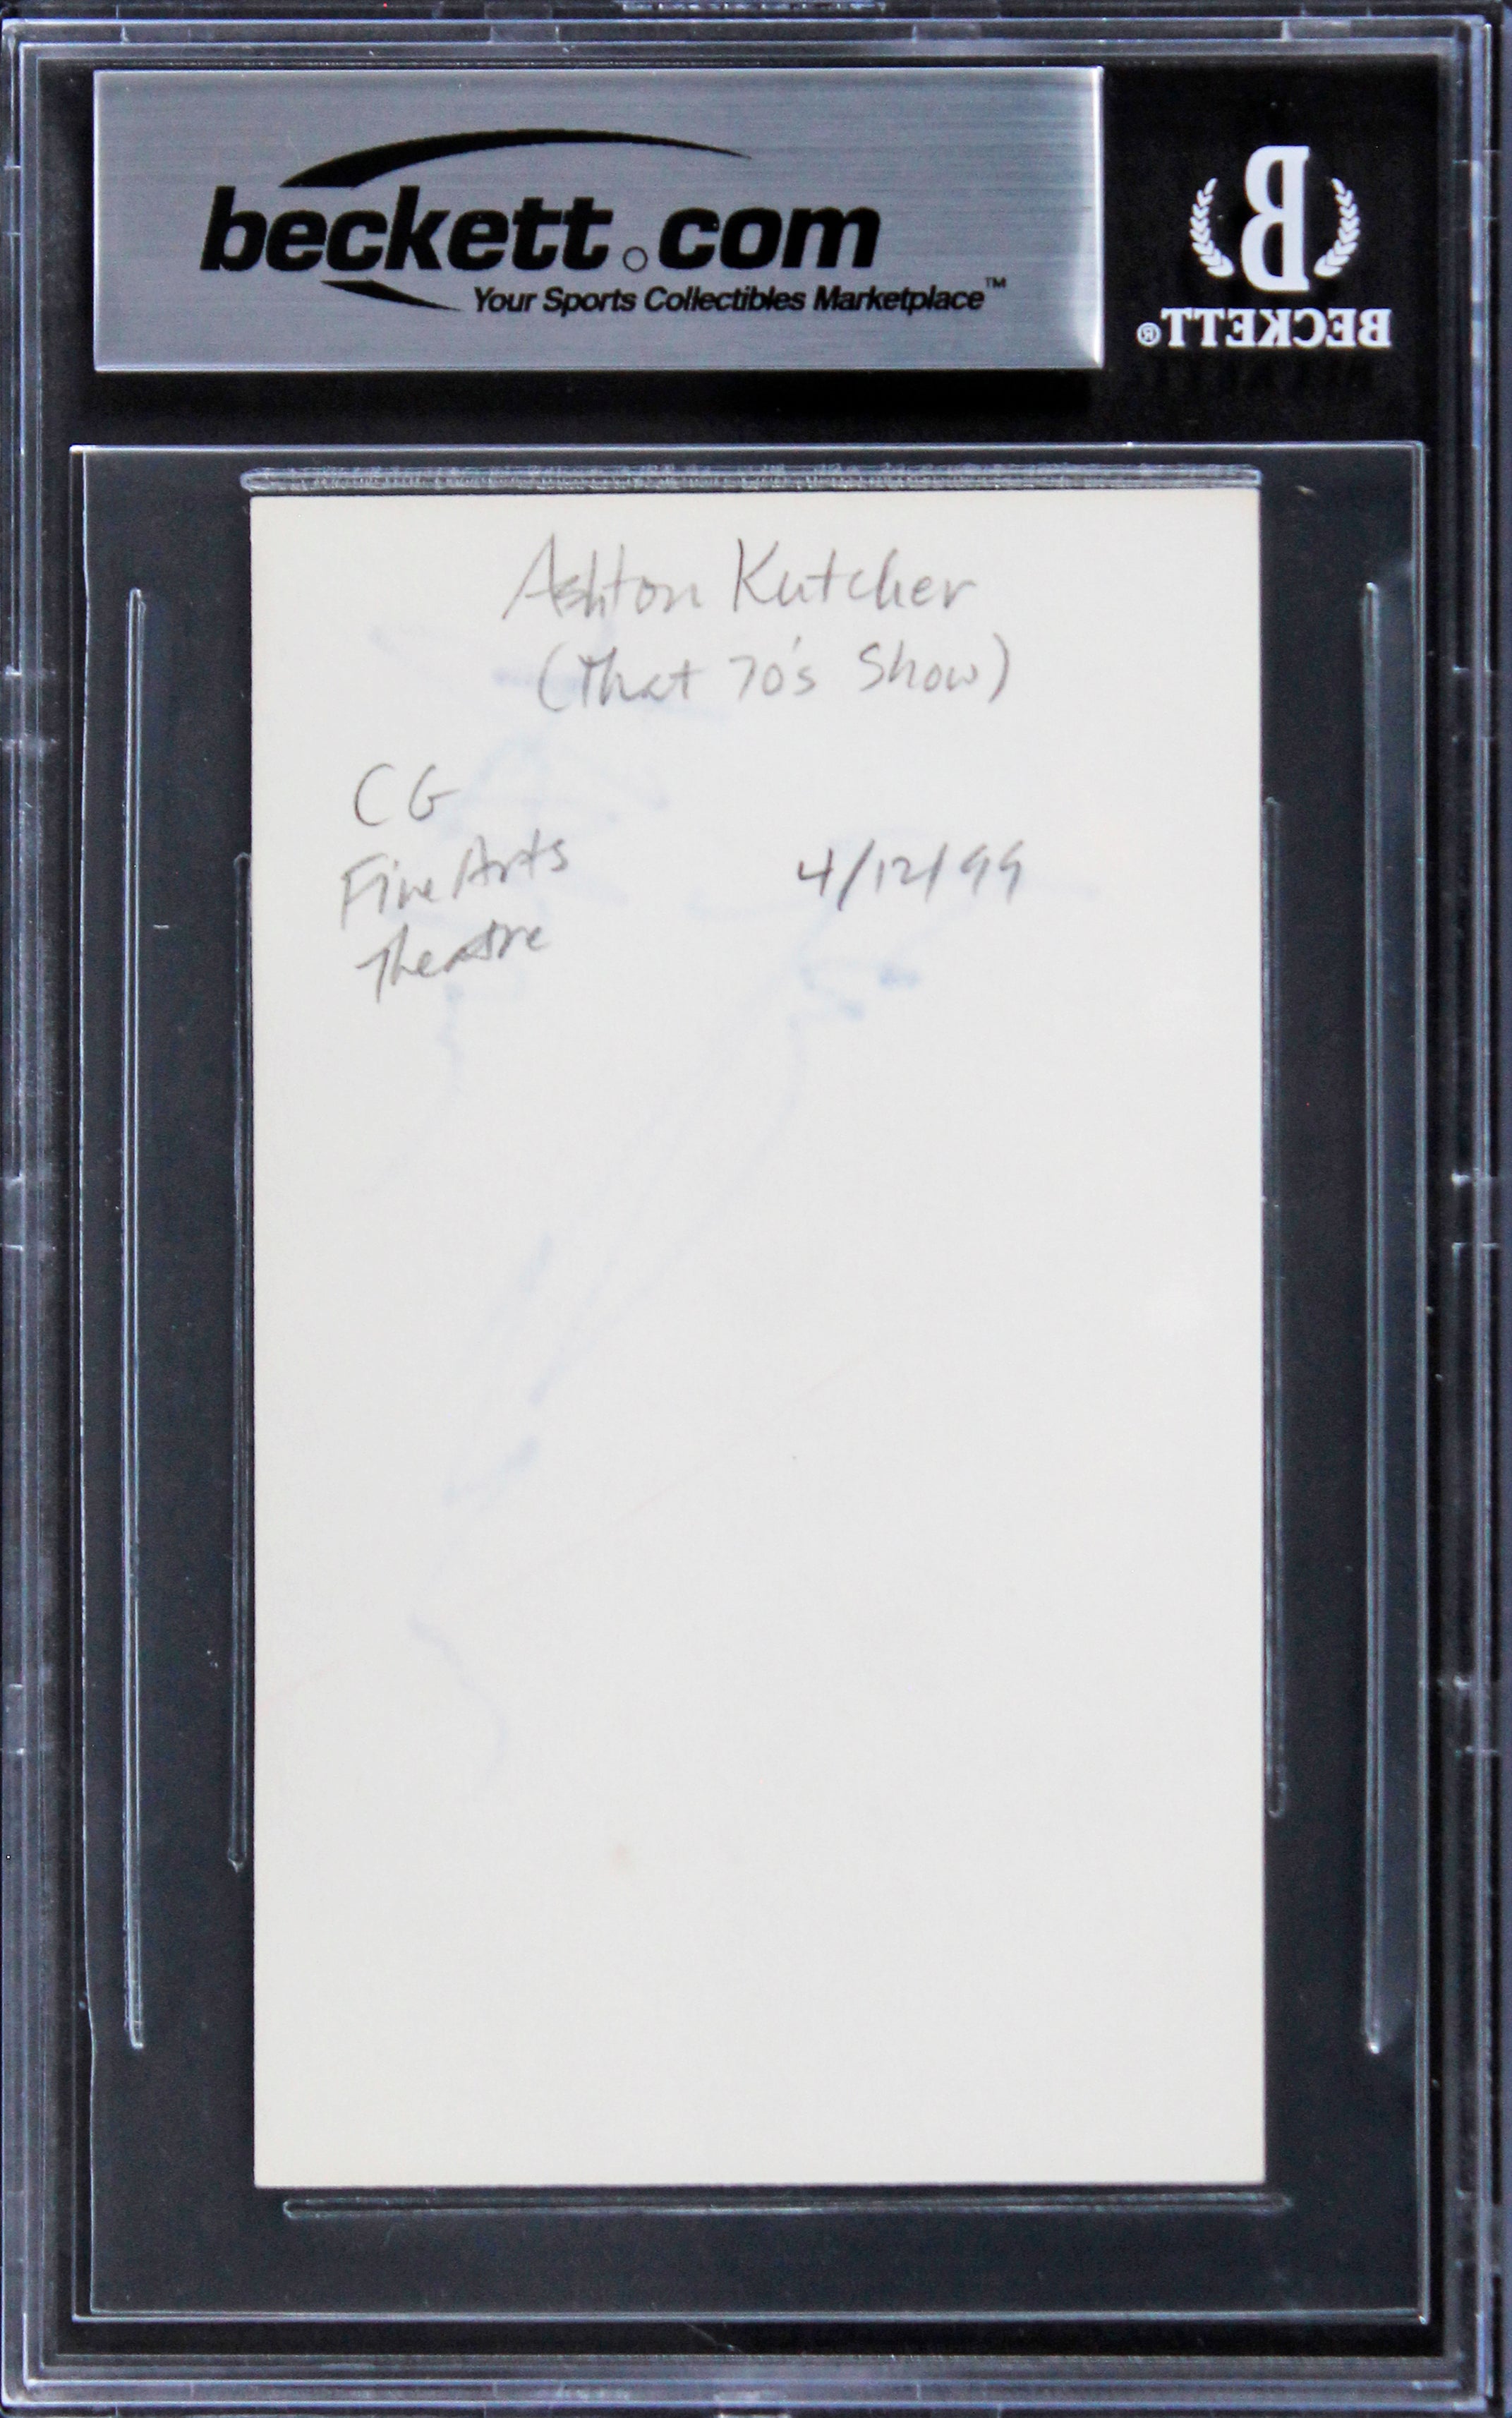 beckett.com
Your Sports Collectibles Marketplace™
B
BECKETT®
Ashton Kutcher
(That 70's Show)
CG
Fine Arts
Theatre
4/12/99